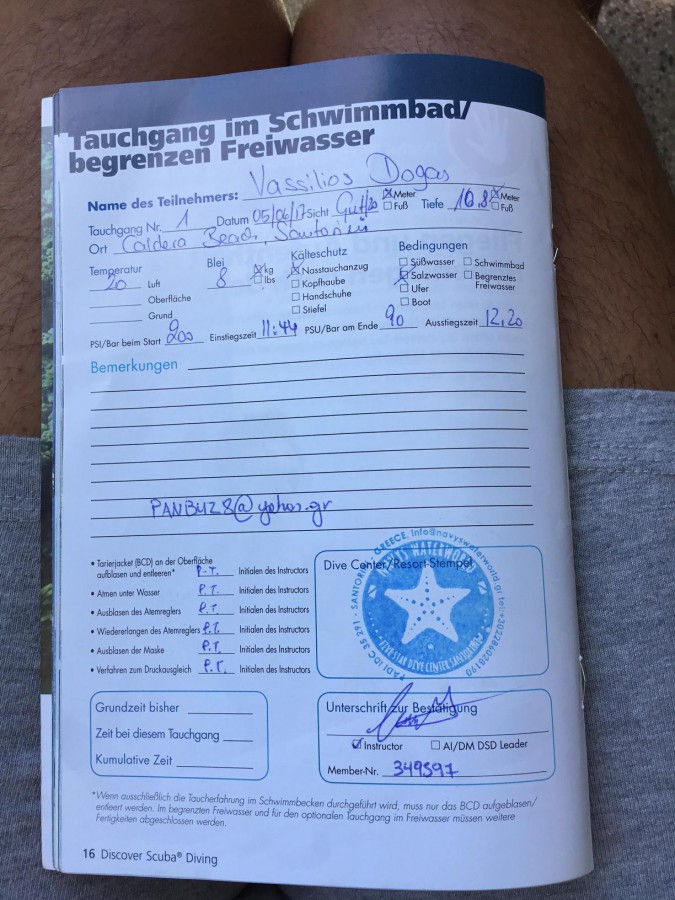 Tauchgang im Schwimmbad/
begrenzen Freiwasser
Name des Teilnehmers: Vassilios Dogas
Tauchgang Nr. 1 Datum 05/06/17 Sicht Gut/20 Meter Fuß Tiefe 10.8 Meter Fuß
Ort Caldera Beach, Santorini
Temperatur
20 Luft
Oberfläche
Grund
Blei
8 kg
lbs
Kälteschutz
Nasstauchanzug
Kopfhaube
Handschuhe
Stiefel
Bedingungen
Süßwasser Schwimmbad
Salzwasser Begrenztes Freiwasser
Ufer
Boot
PSI/Bar beim Start 200 Einstiegszeit 11:44 PSU/Bar am Ende 90 Ausstiegszeit 12,20
Bemerkungen
PANBU28@yahoo.gr
• Tarierjacket (BCD) an der Oberfläche
aufblasen und entleeren* P.T. Initialen des Instructors
• Atmen unter Wasser P.T. Initialen des Instructors
• Ausblasen des Atemreglers P.T. Initialen des Instructors
• Wiedererlangen des Atemreglers P.T. Initialen des Instructors
• Ausblasen der Maske P.T. Initialen des Instructors
• Verfahren zum Druckausgleich P.T. Initialen des Instructors
Dive Center/Resort-Stempel
PADI IDC 35291 - SANTORINI - GREECE, Info@navyswaterworld.gr tel:+302286028190
NAVY'S WATERWORLD
FIVE STAR DIVE CENTER SANTORINI
Grundzeit bisher
Zeit bei diesem Tauchgang
Kumulative Zeit
Unterschrift zur Bestätigung
Instructor AI/DM DSD Leader
Member-Nr. 349597
*Wenn ausschließlich die Taucherfahrung im Schwimmbecken durchgeführt wird, muss nur das BCD aufgeblasen/
entleert werden. Im begrenzten Freiwasser und für den optionalen Tauchgang im Freiwasser müssen weitere
Fertigkeiten abgeschlossen werden.
16 Discover Scuba® Diving